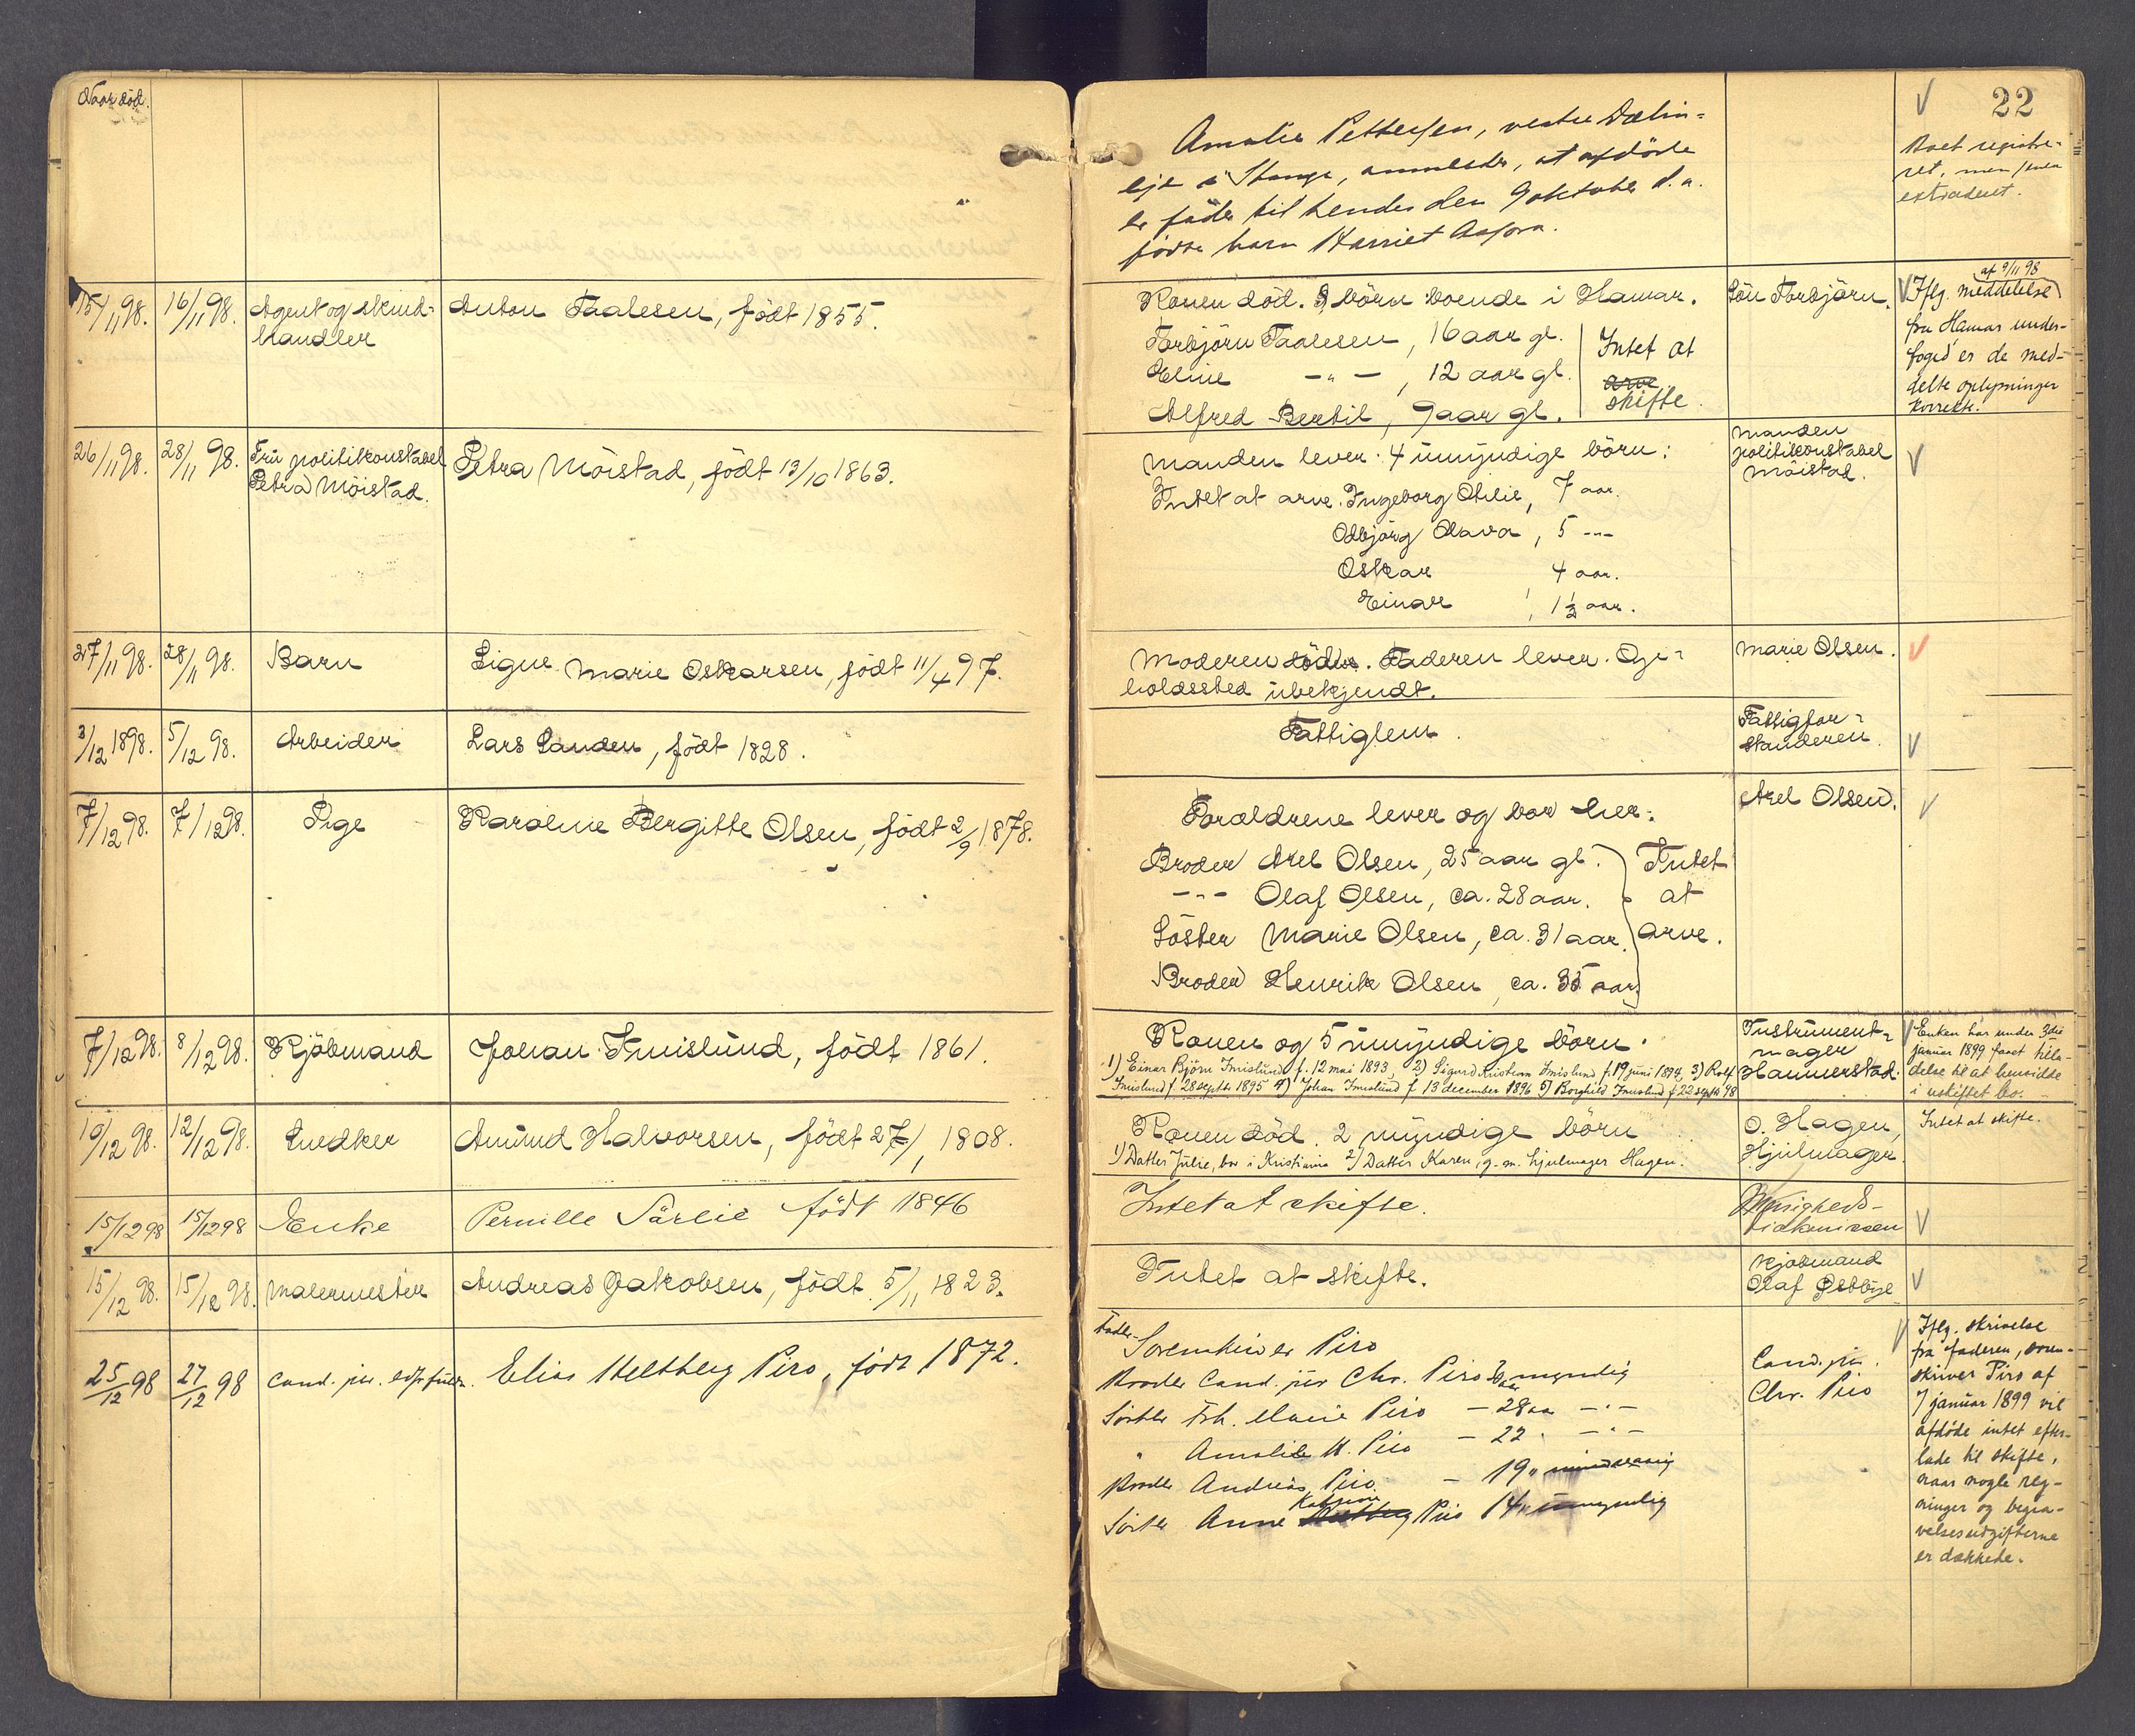 Naar död.
22
Amalie Pettersen, vestre Dælin=
eje i Stange, anmelder, at afdöde
er fader til hendes den 9 oktober d. a.
födte barn Harriet
Boet registre=
ret, men
extraderet.
15/11 98. 16/11 98. Agent og skind=
handler
Anton Taalesen, födt 1855.
Konen död. 3 börn boende i Hamar.
Torbjörn Taalesen, 16 aar gl.
Eline -"- , 12 aar gl.
Alfred Bertil, 9 aar gl.
Intet at
arve
skifte.
Sön Torbjörn.
Iflg. meddelelse
af 9/11 98
fra Hamar under-
foged er de med-
delte oplysninger
korrekt.
26/11 98. 28/11 98. Fru politikonstabel
Petra Möistad.
Petra Möistad, födt 13/10 1863.
Manden lever. 4 umyndige börn:
Intet at arve. Ingeborg Otilie, 7 aar.
Odbjörg Olava, 5 -"-
Oskar 4 aar.
Einar, 1 1/2 aar.
Manden
politikonstabel
Möistad.
27/11 98. 28/11 98. Barn
Signe Marie Oskarsen, födt 11/4 97.
Moderen död. Faderen lever. Op-
holdssted ubekjendt.
Marie Olsen.
3/12 1898. 5/12 98. Arbeider
Lars Sanden, födt 1828.
Fattiglem.
Fattigfor-
standeren.
7/12 98. 7/12 98. Pige
Karoline Bergitte Olsen, födt 2/9 1878.
Forældrene lever og bor her.
Broder Axel Olsen, 25 aar gl.
-"- Olaf Olsen, ca. 28 aar.
Söster Marie Olsen, ca. 31 aar.
Broder Henrik Olsen, ca. 35 aar.
Intet
at
arve.
Axel Olsen.
7/12 98. 8/12 98. Kjöbmand
Johan Imislund, födt 1861.
Konen og 5 umyndige börn.
1) Einar Björn Imislund f. 12 mai 1893, 2) Sigurd Kristian Imislund f. 19 juni 1894, 3) Rolf
Imislund f. 28 septbr 1895 4) Johan Imislund f. 13 december 1896 5) Borghild Imislund f. 22 septbr 98
Instrument-
mager
Hammerstad.
Enken har under 3die
januar 1899 faaet tilla-
delse til at hensidde
i uskiftet bo.
10/12 98. 12/12 98. Snedker
Amund Halvorsen, födt 27/1 1808.
Konen död. 2 myndige börn
1) Datter Julie, bor i Kristiania 2) Datter Karen, g. m. hjulmager Hagen.
O. Hagen,
Hjulmager.
Intet at skifte.
15/12 98 15/12 98 Enke
Pernille Sörlie födt 1846
Intet at skifte.
15/12 98. 15/12 98. Malermester
Andreas Jakobsen, födt 5/11 1823.
Intet at skifte.
Kjøbmand
Olaf Østbye
25/12 98 27/12 98 Cand. jur.
Elias Heltberg Piro, födt 1872.
Fader Sorenskriver Piro
Broder Cand. jur Chr. Piro myndig
Söster Frk. Marie Piro - 28 aar -"-
" Amalie H. Piro - 22 " -"-
Broder Andreas Piro - 19 " mindreaarig
Söster Anne Katrine Piro 14 " umyndig
Cand. jur.
Chr. Piro
Iflg. skrivelse
fra faderen, soren-
skriver Piro af
7 januar 1899 vil
afdöde intet efter-
lade til skifte,
naar nogle reg-
ninger og begra-
velsesudgifterne
er dækkede.